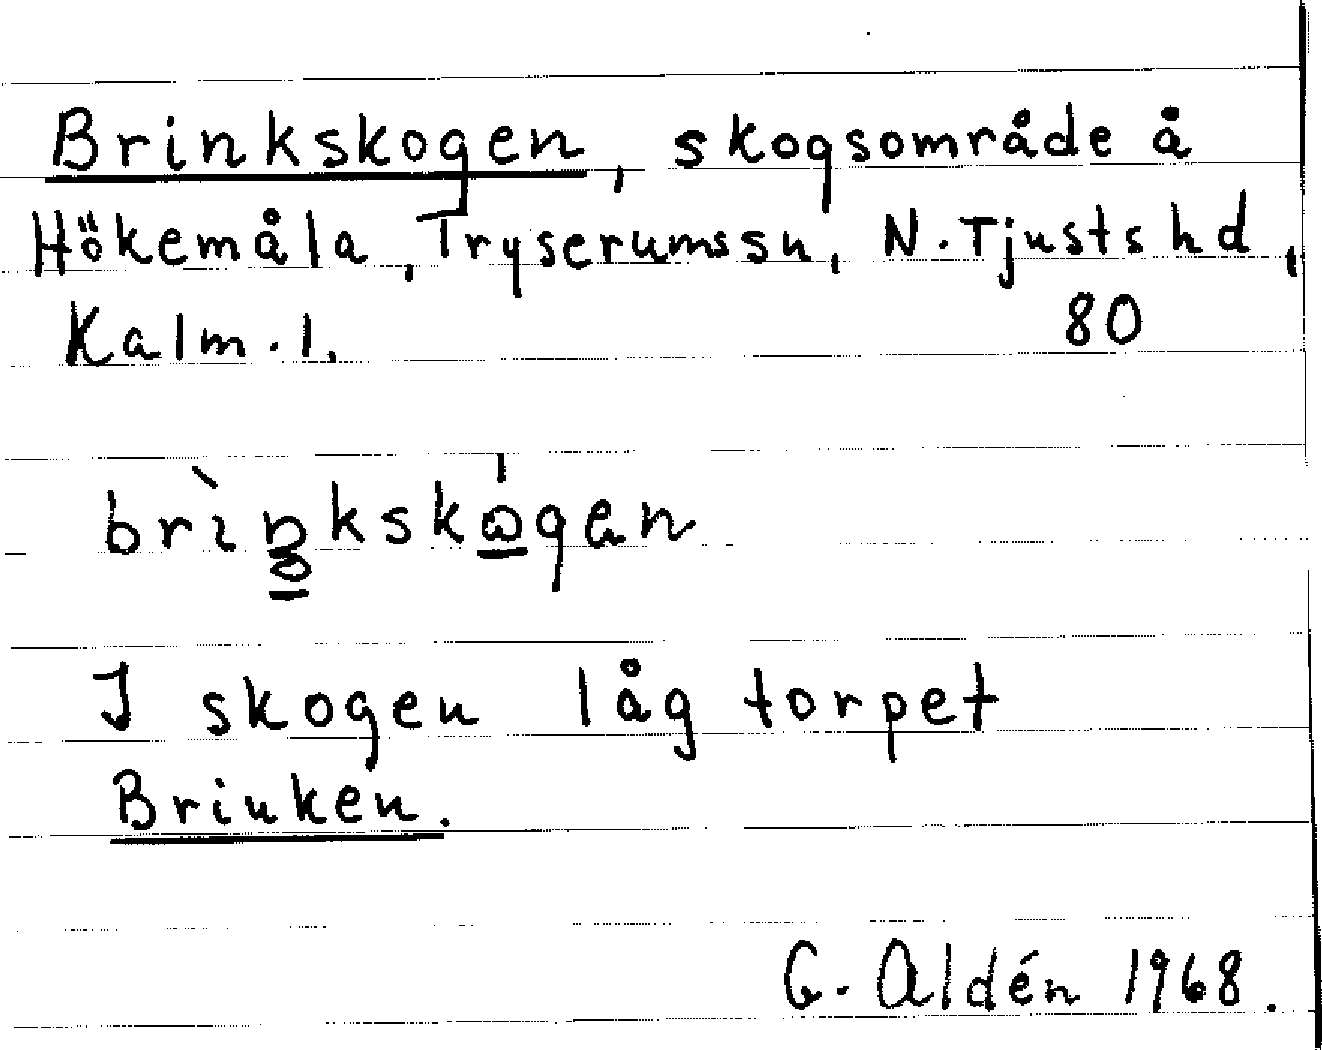 Brinkskogen, skogsområde å
Hökemåla, Tryserums sn, N. Tjusts hd,
Kalm. l. 80
I skogen låg torpet
Brinken.
G. Aldén 1968.